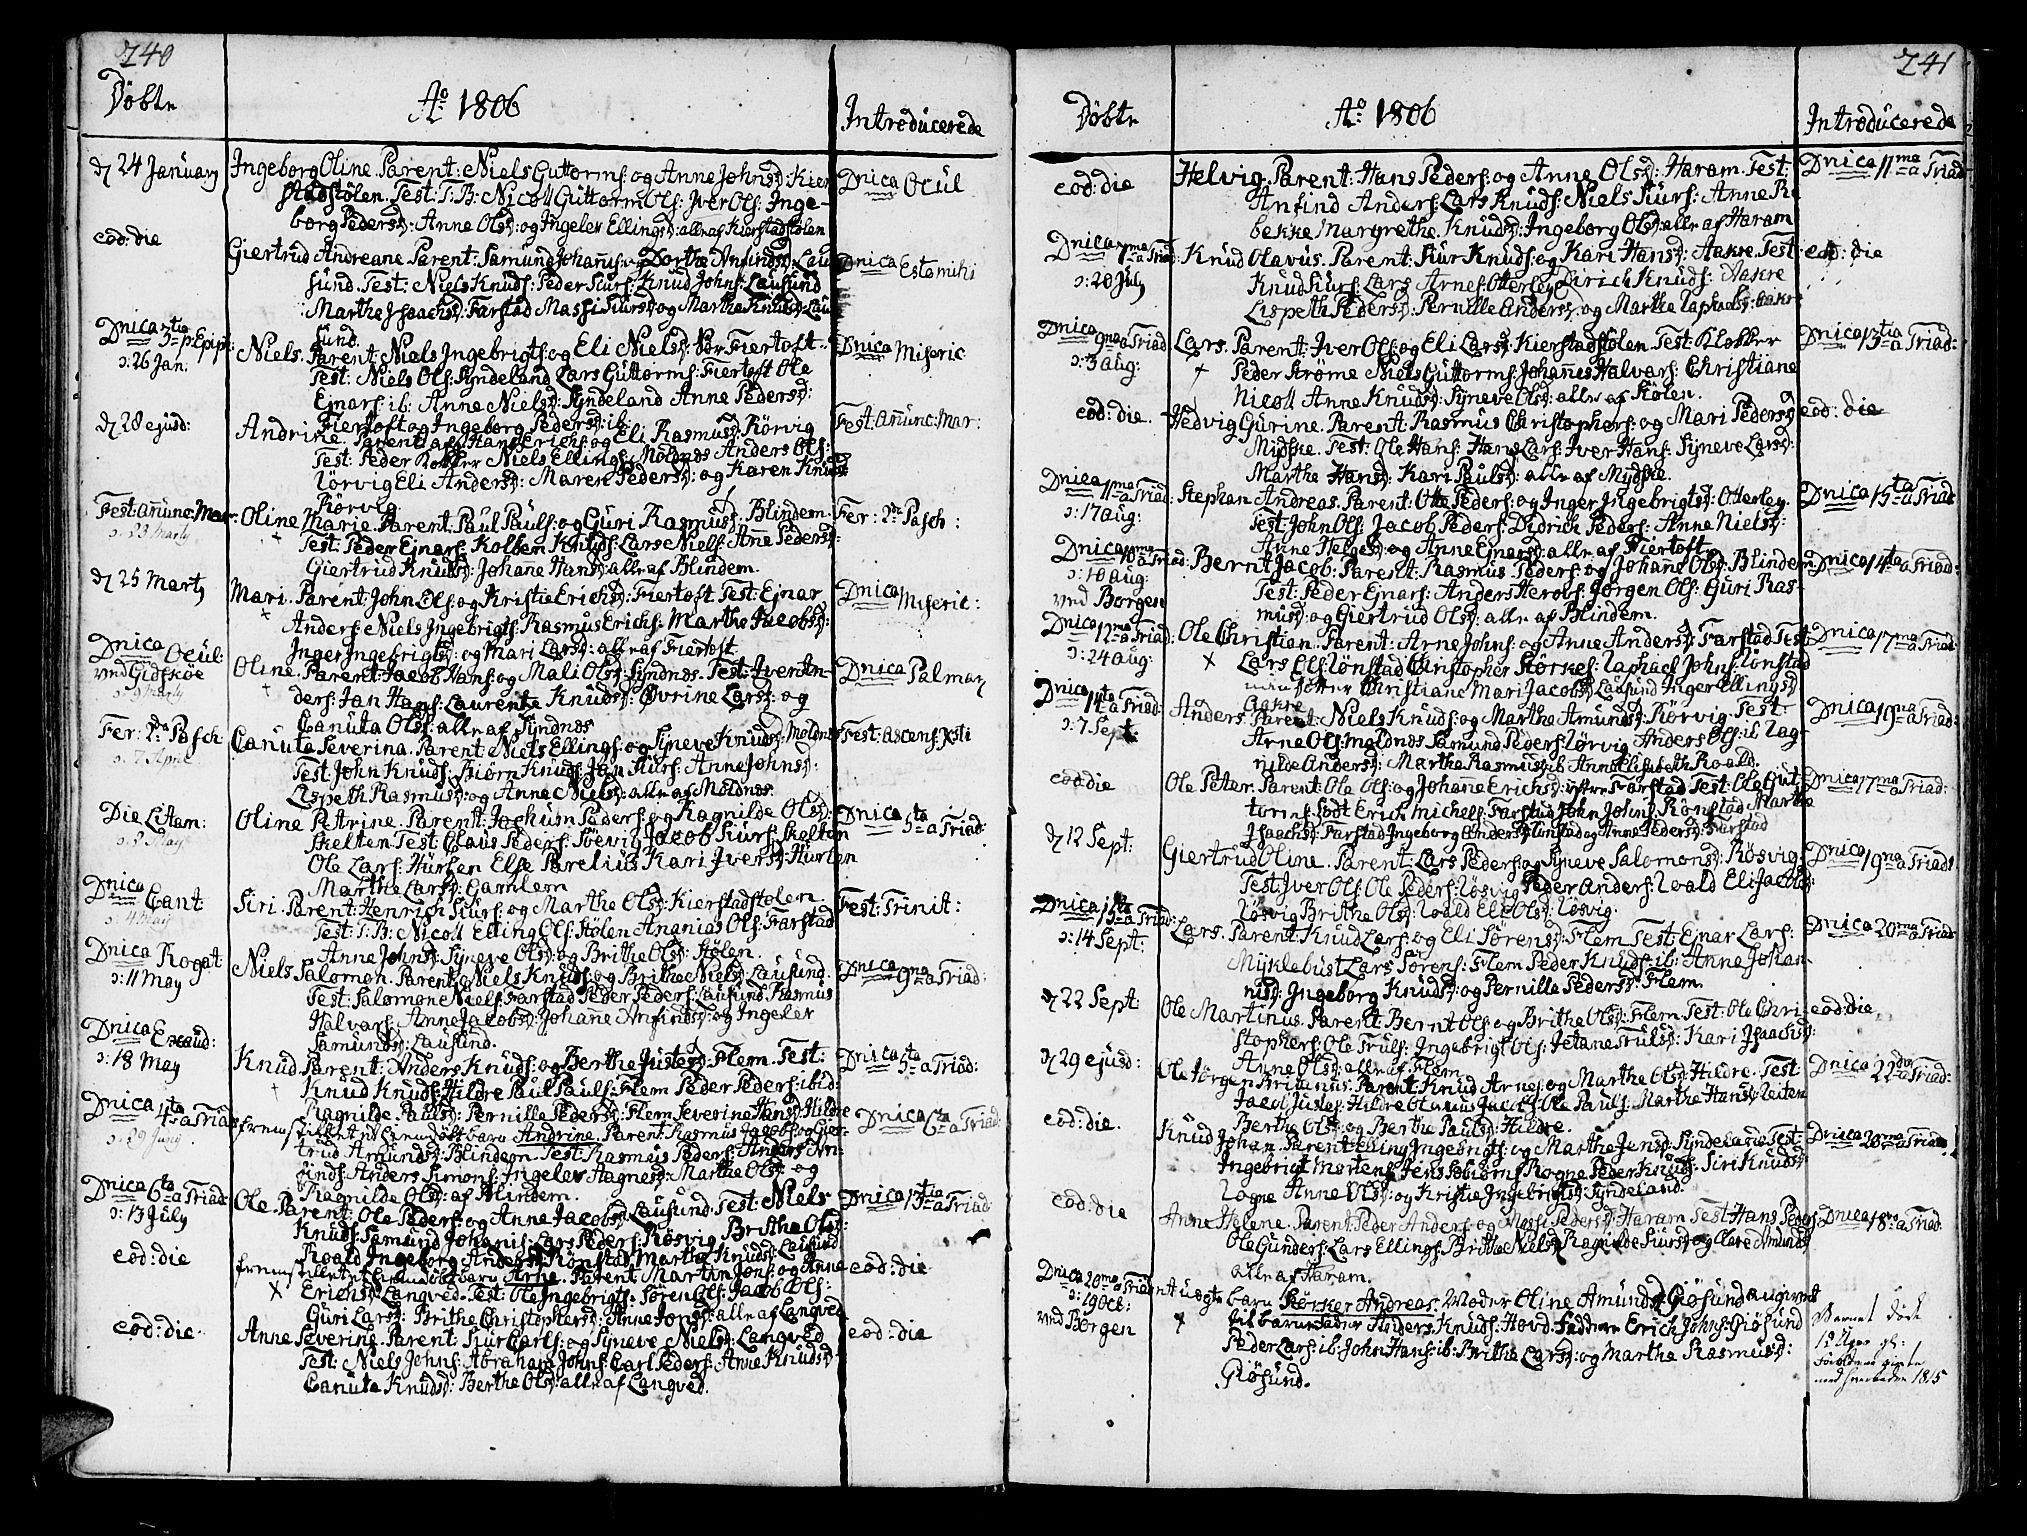 240
Döbte
Ao 1806
Introducerede
d 24 January
Ingeborg Oline. Parent: Niels Guttorms: og Anne Johnsd: Kier
stadstölen. Test: T: B: Nicoll Guttorm Ols: Iver Ols: Inge-
borg Pedersd: Anne Olsd: og Ingeler Ellingsd: alle af Kierstadstölen
Dnica Ocul
eod: die
Giertrud Andreane Parent: Samund Johanis: og Dorthe Anfindsd: Lau
sund. Test: Niels Knuds: Peder Siurs: Knud Johns: Lausund
Marthe Isaachsd: Farstad Massi Siursd: og Marthe Knudsd: Lau
sund.
Dnica Estomihi
Dnica 3tia p Epiph:
ɔ: 26 Jan:
Niels. Parent: Niels Ingebrigts: og Eli Nielsd: Fiertoft.
Test: Niels Ols: Syndeland Lars Guttorms: Fiertoft Ole
Ejnars: ib: Anne Nielsd: Syndeland Anne Pedersd:
Fiertoft og Ingeborg Pedersd: ib:
Dnica Miseric
d 28 ejusd:
Andrine. Parent: Hans Erichs: og Eli Rasmusd: Rörvig
Test: Peder Niels Ellings: Moldnes Anders Ols:
Rörvig Eli Andersd: Maren Pedersd: og Karen Knudsd
Rörvig
Fest: Anunc: Mar:
Fest: Anunc: Mar:
ɔ: 23 Marty
Oline Marie. Parent: Paul Pauls: og Guri Rasmusd: Blindem
Test: Peder Ejnars: Kolbem Knuds: Lars Niels: Anne Pedersd:
Giertrud Knudsd: Johane Hansd: alle af Blindem.
Fer: 2da Pasch:
d 25 Marty
Mari. Parent: John Ols: og Kristie Erichsd: Fiertoft Test: Ejnar
Anders: Niels Ingebrigts: Rasmus Erichs: Marthe Jacobsd:
Inger Ingebrigtsd: og Mari Larsd: alle af Fiertoft.
Dnica Miseric:
Dnica Ocul:
ved Gidskøe
ɔ: 9 Marty
Oline. Parent: Jacob Hans: og Mali Olsd: Syndnes. Test: Iver An-
ders: Jan Hans: Laurente Knudsd: Øvrine Larsd: og
Canuta Olsd: alle af Syndnes
Dnica Palmar
Fer: 2da Pasch
ɔ: 7 April
Canuta Severina. Parent: Niels Ellings: og Syneve Knudsd: Moldnes
Test John Knuds: Biörn Knuds: Jan Siurs: Anne Johnsd:
Lispeth Rasmusd: og Anne Nielsd: alle af Moldnes.
Fest: Ascens: Xsti
Die Litan:
ɔ: 2 May
Oline Petrine. Parent: Jochum Peders: og Ragnilde Olsd:
Skelten Test: Claus Peders: Söevig Jacob Siurs: Skelten
Ole Lars: Hursen Else Parelius Kari Iversd: Hursen
Marthe Larsd: Gamlem
Dnica 5ta a Triad:
Dnica Cant
ɔ: 4 May
Siri. Parent: Henrich Siurs: og Marthe Olsd: Kierstadstolen.
Test: T: B: Nicoll Elling Ols: Stölen Ananias Ols: Farstad
Anne Johnsd: Syneve Olsd: og Brithe Olsd: Stölen.
Fest: Trinit:
Dnica Rogat
ɔ: 11 May
Niels Salomon. Parent: Niels Knuds: og Brithe Nielsd: Lausund.
Test: Salomone Niels: Farstad Peder Peders: Lausund Rasmus
Halvars: Anne Jacobsd: Johane Anfindsd: og Ingeler
Samundsd: Lausund.
Dnica 9na a Triad:
Dnica Exaud:
ɔ: 18 May
Knud Parent: Anders Knuds: og Berthe Justesd: Flem. Test:
Knud Knuds: Hildre Paul Pauls: Flem Peder Peders: ibid:
Ragnilde. Paulsd: Pernille Pedersd: Flem Severine Hansd: Hildre
Dnica 5ta a Triad:
Dnica 4ta a Triad
ɔ: 29 Juny
fremstillet et hiemdöbt barn Andrine. Parent: Rasmus Jacobs: og Gier-
trud Amundsd: Blindem. Test: Rasmus Peders: Anders An-
finds: Anders Simons: Ingeler Hagnesd: Marthe Olsd: og
Ragnilde Olsd: af Blindem.
Dnica 6ta a Triad:
Dnica 6ta a Triad
ɔ: 13 July
Ole. Parent: Ole Peders: og Anne Jacobsd: Lausund. Test: Niels
Knuds: Samund Johanis: Lars Peders: Rösvig Brithe Olsd:
Roald Ingeborg Andersd: Rönstad Marthe Knudsd: Lausund
Dnica 13tia a Triad:
eod: die
fremstillet et hiemdöbt barn Arne. Parent Martin Jons: og Anne
Erichsd: Langved. Test: Ole Ingebrigts: Sören Ols: Jacob Ols:
Guri Larsd: Brithe Christophersd: Anne Jonsd: alle af Langved
eod: die
eod: die.
Anne Severine. Parent: Siur Carls: og Syneve Nielsd: Langved
Test: Niels Johns: Abraham Johns: Carl Peders: Anne Knudsd:
Canuta Knudsd: Berthe Olsd: alle af Langved.
eod: die
241
Döbte
Ao: 1806
Introducerede
eod: die
Helvig. Parent: Hans Peders: og Anne Olsd: Haram. Test:
Anfind Anders: Lars Knuds: Niels Siurs: Anne Re
bekke Margrethe. Knudsd: Ingeborg Olsd: alle af Haram
Dnica 11ma a Triad
Dnica 7ma a Triad
ɔ: 20 July
Knud Olavus. Parent: Siur Knuds: og Kari Hansd: Aakre. Test:
Knud Siurs: Lars Arnes: Otterley Dirich Knuds: Aakre
Lispeth Pedersd: Pernille Andersd: og Marthe Zaphaelsd: Aakre
eod: die
Dnica 9na a Triad
ɔ: 3 aug:
Lars. Parent: Iver Ols: og Eli Larsd: Kierstadstölen. Test: Klokker
Peder Strome Niels Guttorms: Johanes Halvars: Christiane
Nicoll Anne Knudsd: Syneve Olsd: alle af Stölen.
Dnica 13tia a Triad:
eod: die.
Hedvig Gurine. Parent: Rasmus Christophers: og Mari Pedersd
Mydske. Test: Ole Hans: Hans Lars: Iver Hans: Syneve Larsd:
Marthe Hansd: Kari Paulsd: alle af Mydske.
eod: die
Dnica 11ma a Triad:
ɔ: 17 aug:
Stephen Andreas. Parent: Otte Peders: og Inger Ingebrigtsd: Otterley.
Test: John Ols: Jacob Peders: Didrich Peders: Anne Nielsd:
Anne Helgesd: og Anne Ejnarsd: alle af Fiertoft
Dnica 15ta a Triad
Dnica 10ma a Triad:
ɔ: 10 aug:
ved Borgen
Bernt Jacob. Parent: Rasmus Peders: og Johane Olsd: Blindem
Test: Peder Ejnars: Anders Herobs: Jörgen Ols: Guri Ras-
musd: og Giertrud Olsd: alle af Blindem.
Dnica 14ta a Triad:
Dnica 12ma a Triad:
ɔ: 24 aug:
Ole Christian. Parent: Arne Johns: og Anne Andersd: Farstad Test
Lars Ols: Rönstad Christopher Störkes: Zaphael Johns: Rönstad
Christiane Mari Jacobsd: Lausund Inger Ellingsd
Aakre
Dnica 17ma a Triad:
Dnica 14ta a Triad:
ɔ: 7 Sept:
Anders Parent: Niels Knuds: og Marthe Amundsd: Rörvig. Test:
Arne Ols: Moldnes Samund Peders: Rörvig Anders Ols: ib Rag-
nilde Andersd: Marthe Rasmusd: ib Anne Elisabeth Roald.
Dnica 19na a Triad:
eod: die
Ole Peter. Parent: Ole Ols: og Johane Erichsd: Farstad Test: Ole Gut:
torms: Erich Michels: Farstad John Johns: Rönstad Marthe
Isaachsd: Farstad Ingeborg Andersd: Rönstad og Anne Pedersd: Farstad
Dnica 17ma a Triad:
d 12 Sept:
Giertrud Oline. Parent: Lars Peders: og Syneve Salomonsd: Rösvig.
Test: Iver Ols: Ole Peders: Rösvig Peder Anders: Roald Eli Jacobsd:
Rösvig Brithe Olsd: Roald Eli Olsd: Rösvig.
Dnica 19na a Triad:
Dnica 15ta a Triad:
ɔ: 14 Sept:
Lars. Parent: Knud Lars: og Eli Sörensd: Flem Test: Ejnar Lars:
Myklebust Lars Sörens: Flem Peder Knuds: ib: Anne Johan-
nisd: Ingeborg Knudsd: og Pernille Pedersd: Flem.
Dnica 20ma a Triad
d 22 Sept:
Ole Martinus. Parent: Bernt Ols: og Brithe Olsd: Flem. Test: Ole Chri-
stophers: Ole Truls: Ingebrigt Ols: Jetane Trulsd: Kari Isaachsd:
Anne Olsd: alle af Flem.
eod: die
d 29 ejusd:
Ole Jörgen Britanus. Parent: Knud Arnes: og Marthe Olsd: Hildre. Test:
Jacob Justes: Hildre Olanus Jacobs: Ole Pauls: Marthe Hansd: Zeiten
Berthe Olsd: og Berthe Paulsd: Hildre.
Dnica 22da a Triad:
eod: die.
Knud Johan. Parent: Elling Ingebrigts: og Marthe Jensd: Syndeland Test:
Ingebrigt Mortens: Jens Rogne Peder Knuds: Siri Knudsd
Rogne Anne Olsd: og Kristie Ingebrigtsd: Syndeland.
Dnica 20ma a Triad
eod: die
Anne Helene. Parent: Peder Anders: og Massi Pedersd: Haram Test Hans Peders:
Ole Gunders: Lars Ellings: Brithe Nielsd: Ragnilde Siursd: og Olave Amundsd
alle af Haram.
Dnica 18va a Triad
Dnica 20ma a Triad
ɔ: 19 Oct:
ved Borgen
et uægte barn Störker Andreas. Moder Oline Amundsd Giösund angivet
til barnefader Anders Knuds: Hovd. Faddere Erich Johns: Giösund
Peder Lars: ib: John Hans: ib: Brithe Larsd: og Marthe Rasmusd:
Giösund.
Barnet döde
12 Uger gl:
Forældrene givte
med hverandre 1815